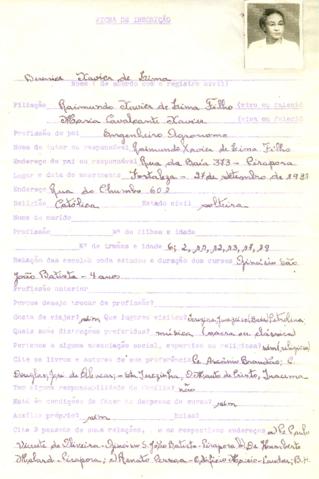 FICHA DE INSCRIÇÃO
Xavier de Lima
Nome ( de acordo com o registro civil)
Filiação Raimundo Xavier de Lima Filho (vivo ou falecido
Maria Cavalcante Xavier (viva ou falecida
Profissão do pai Engenheiro Agronomo
Nome do tutor ou responsável Raimundo Xavier de Lima Filho
Endereço do pai ou responsável Rua da Baía 373 - Pirapora
Lugar e data do nascimento Fortaleza - 27 de Setembro de
Endereço Rua do Chumbo 602
Religião Católica Estado civil solteira
Nome do marido
Profissão Nº de filhos e idade
Nº de irmãos e idade 6; 2, 11, 12, 13, 17, 19
Relação das escolas onde estudou e duração dos cursos Ginásio São
João Batista - 4 anos
Profissão anterior
Porque deseja trocar de profissão?
Gosta de viajar? sim Que lugares visitou?
Quais suas distrações preferidas? música ( ou clássica)
Pertence a alguma associação social, esportiva ou religiosa? sim (religiosa)
Cite os livros e autores de sua preferência
Douglas, José de Alencar - O Manto de Cristo, Iracema
Tem alguma responsabilidade de família? não
Está em condições de fazer as despesas do curso? sim
Auxílio próprio? sim Bolsa?
Cite 3 pessoas de suas relações, e os respectivos endereços Paulo
Vicente de Oliveira - Ginásio S. João Batista - Pirapora Dr. Humberto
Malard - Pirapora; Renato - Edifício B.H.